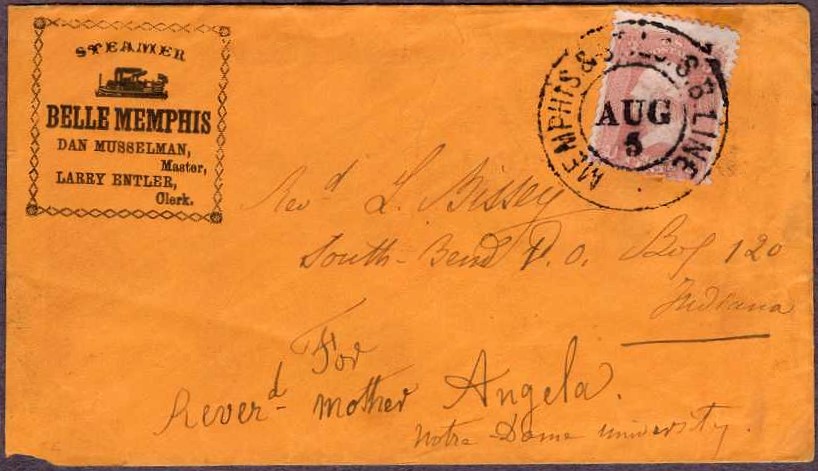 STEAMER
BELLE MEMPHIS
DAN MUSSELMAN,
Master,
LARRY ENTLER,
Clerk.
MEMPHIS & ST. LO. S.B. LINE
AUG
5
Revd L. Bissey
South-Bend P.O. Box 120
Indiana
For
Reverd Mother Angela.
Notre Dame university.